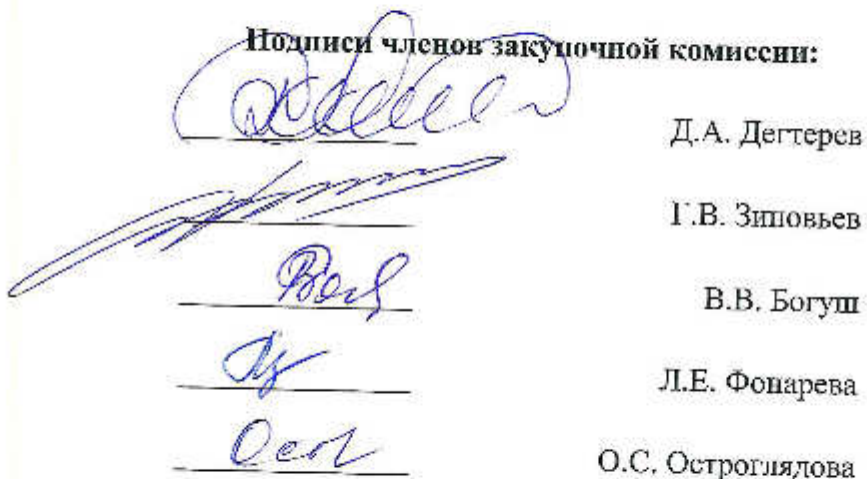 Подписи членов закупочной комиссии:
Д.А. Дегтерев
Г.В. Зиновьев
В.В. Богуш
Л.Е. Фонарева
О.С. Остроглядова